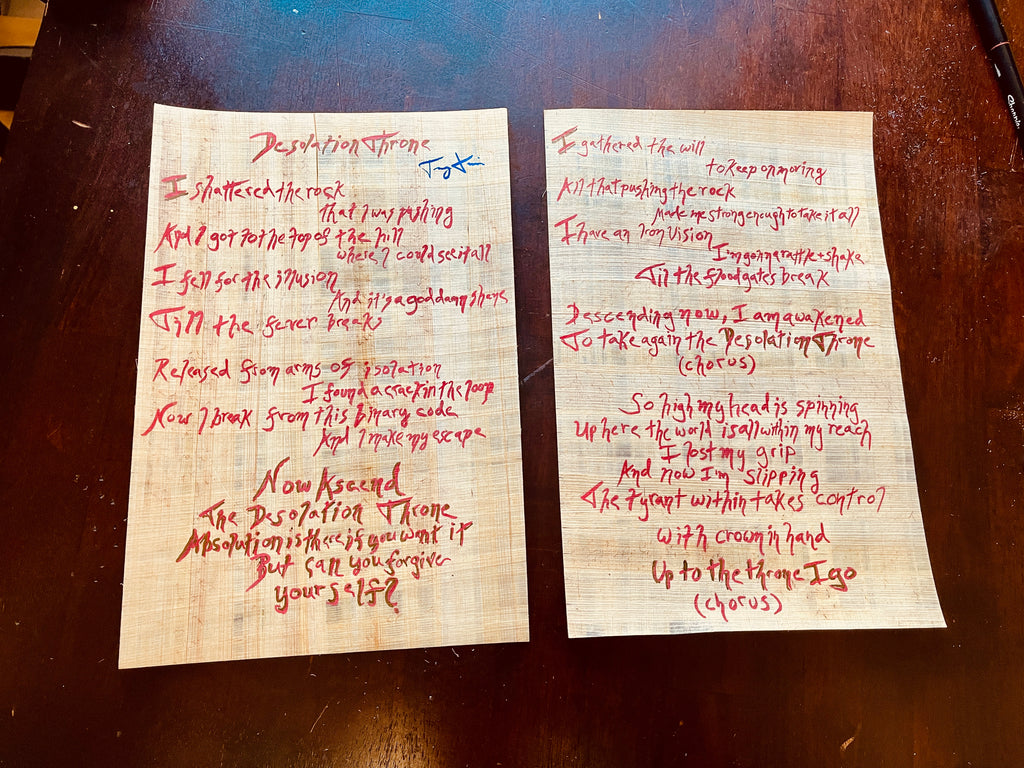 Desolation Throne
I shattered the rock
that I was pushing
And I got to the top of the hill
where I could see it all
I fell for the illusion
And it's a god damn shame
Till the fever breaks
Released from arms of isolation
I found a crack in the loop
Now I break from this binary code
And I make my escape
Now Ascend
The Desolation Throne
Absolution is there if you want it
But can you forgive
yourself?
I gathered the will
to keep on moving
All that pushing the rock
Made me strong enough to take it all
I have an Iron Vision
I'm gonna rattle + shake
Til the floodgates break
Descending now, I am awakened
To take again the Desolation Throne
(chorus)
So high my head is spinning
Up here the world is all within my reach
I lost my grip
And now I'm slipping
The tyrant within takes control
with crown in hand
Up to the throne I go
(chorus)